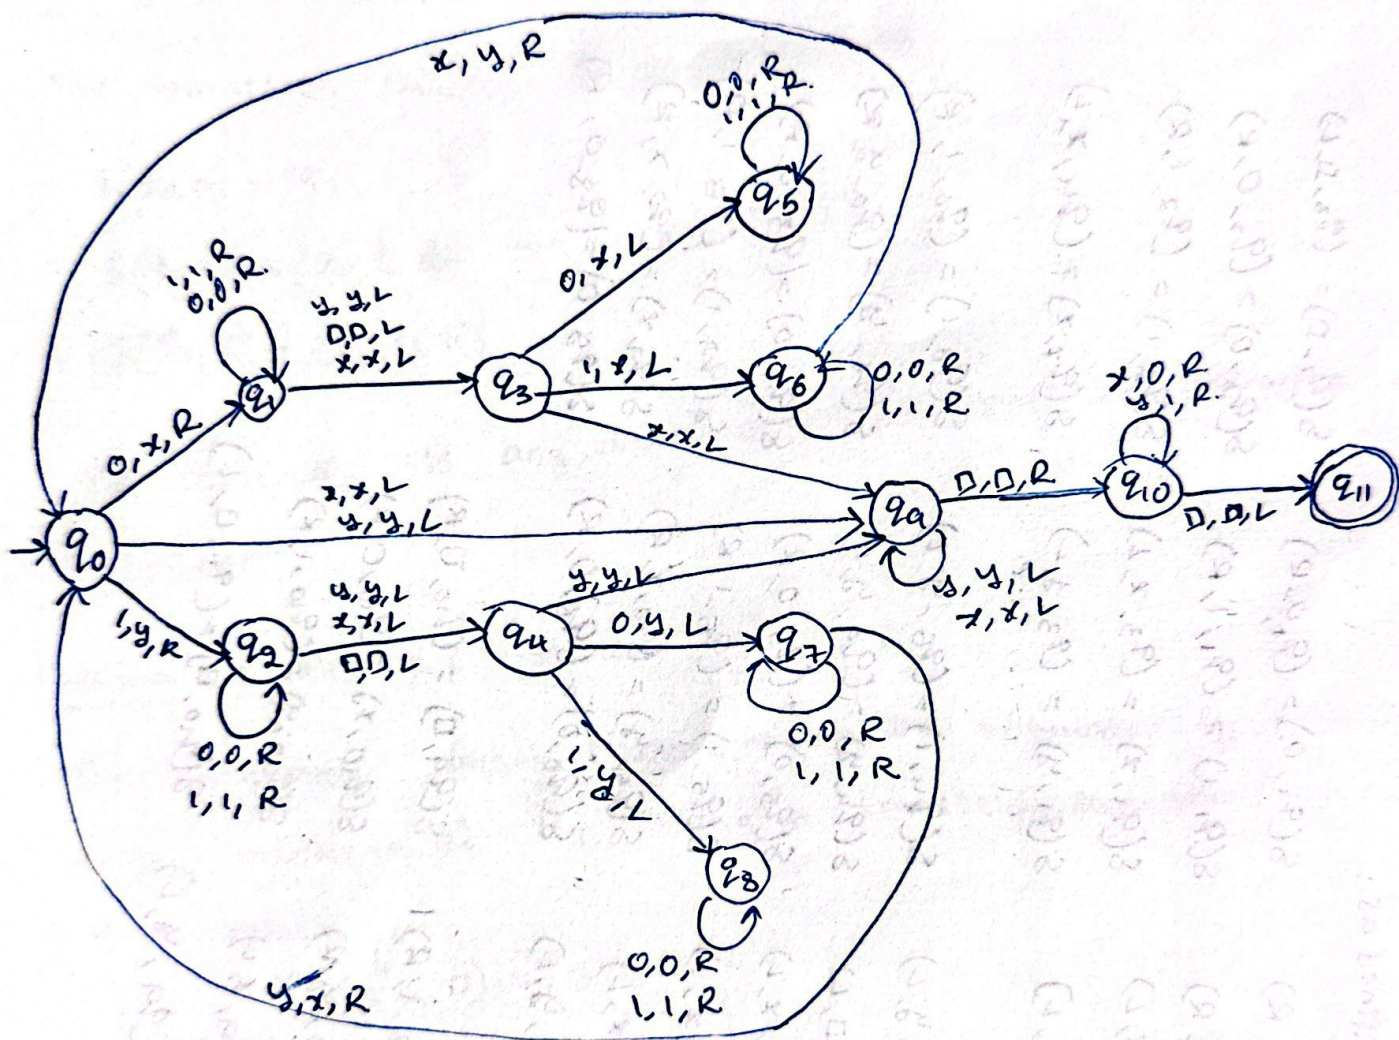 x, y, R
0,0,R
1,1,R.
q5
1,1,R
0,0,R.
y,y,L
□,□,L
x,x,L
0,x,L
q1
q3
1,x,L
q6
0,0,R
1,1,R
x,0,R
y,1,R.
0,x,R
x,x,L
q0
x,x,L
y,y,L
qa
□,□,R
q10
□,□,L
q11
y,y,L
x,x,L
1,y,R
q2
y,y,L
x,x,L
□,□,L
q4
y,y,L
0,y,L
q7
0,0,R
1,1,R
0,0,R
1,1,R
1,y,L
q8
0,0,R
1,1,R
y,x,R